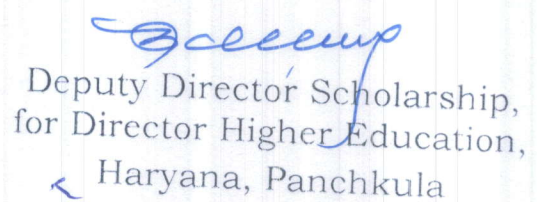 Deputy Director Scholarship,
for Director Higher Education,
Haryana, Panchkula